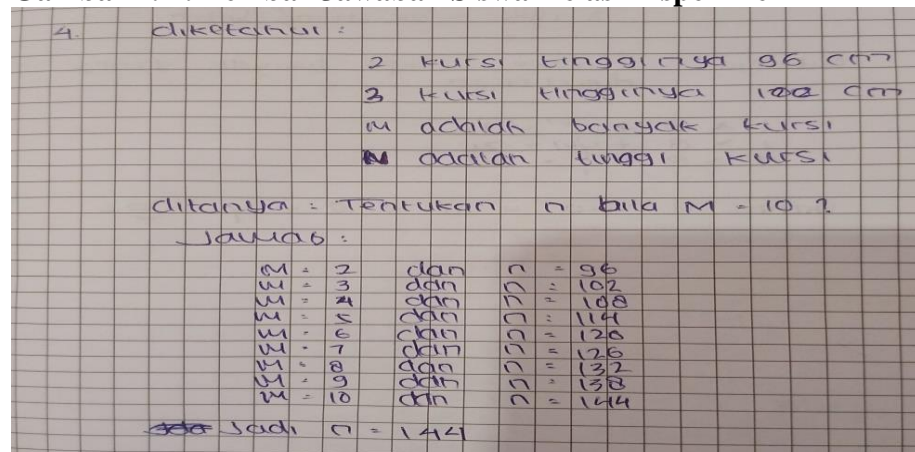 4. diketahui :
2 kursi tingginya 96 cm
3 kursi tingginya 102 cm
M adalah banyak kursi
N adalah tinggi kursi
ditanya : Tentukan n bila M = 10 ?
Jawab :
M = 2 dan n = 96
M = 3 dan n = 102
M = 4 dan n = 108
M = 5 dan n = 114
M = 6 dan n = 120
M = 7 dan n = 126
M = 8 dan n = 132
M = 9 dan n = 138
M = 10 dan n = 144
Jadi n = 144